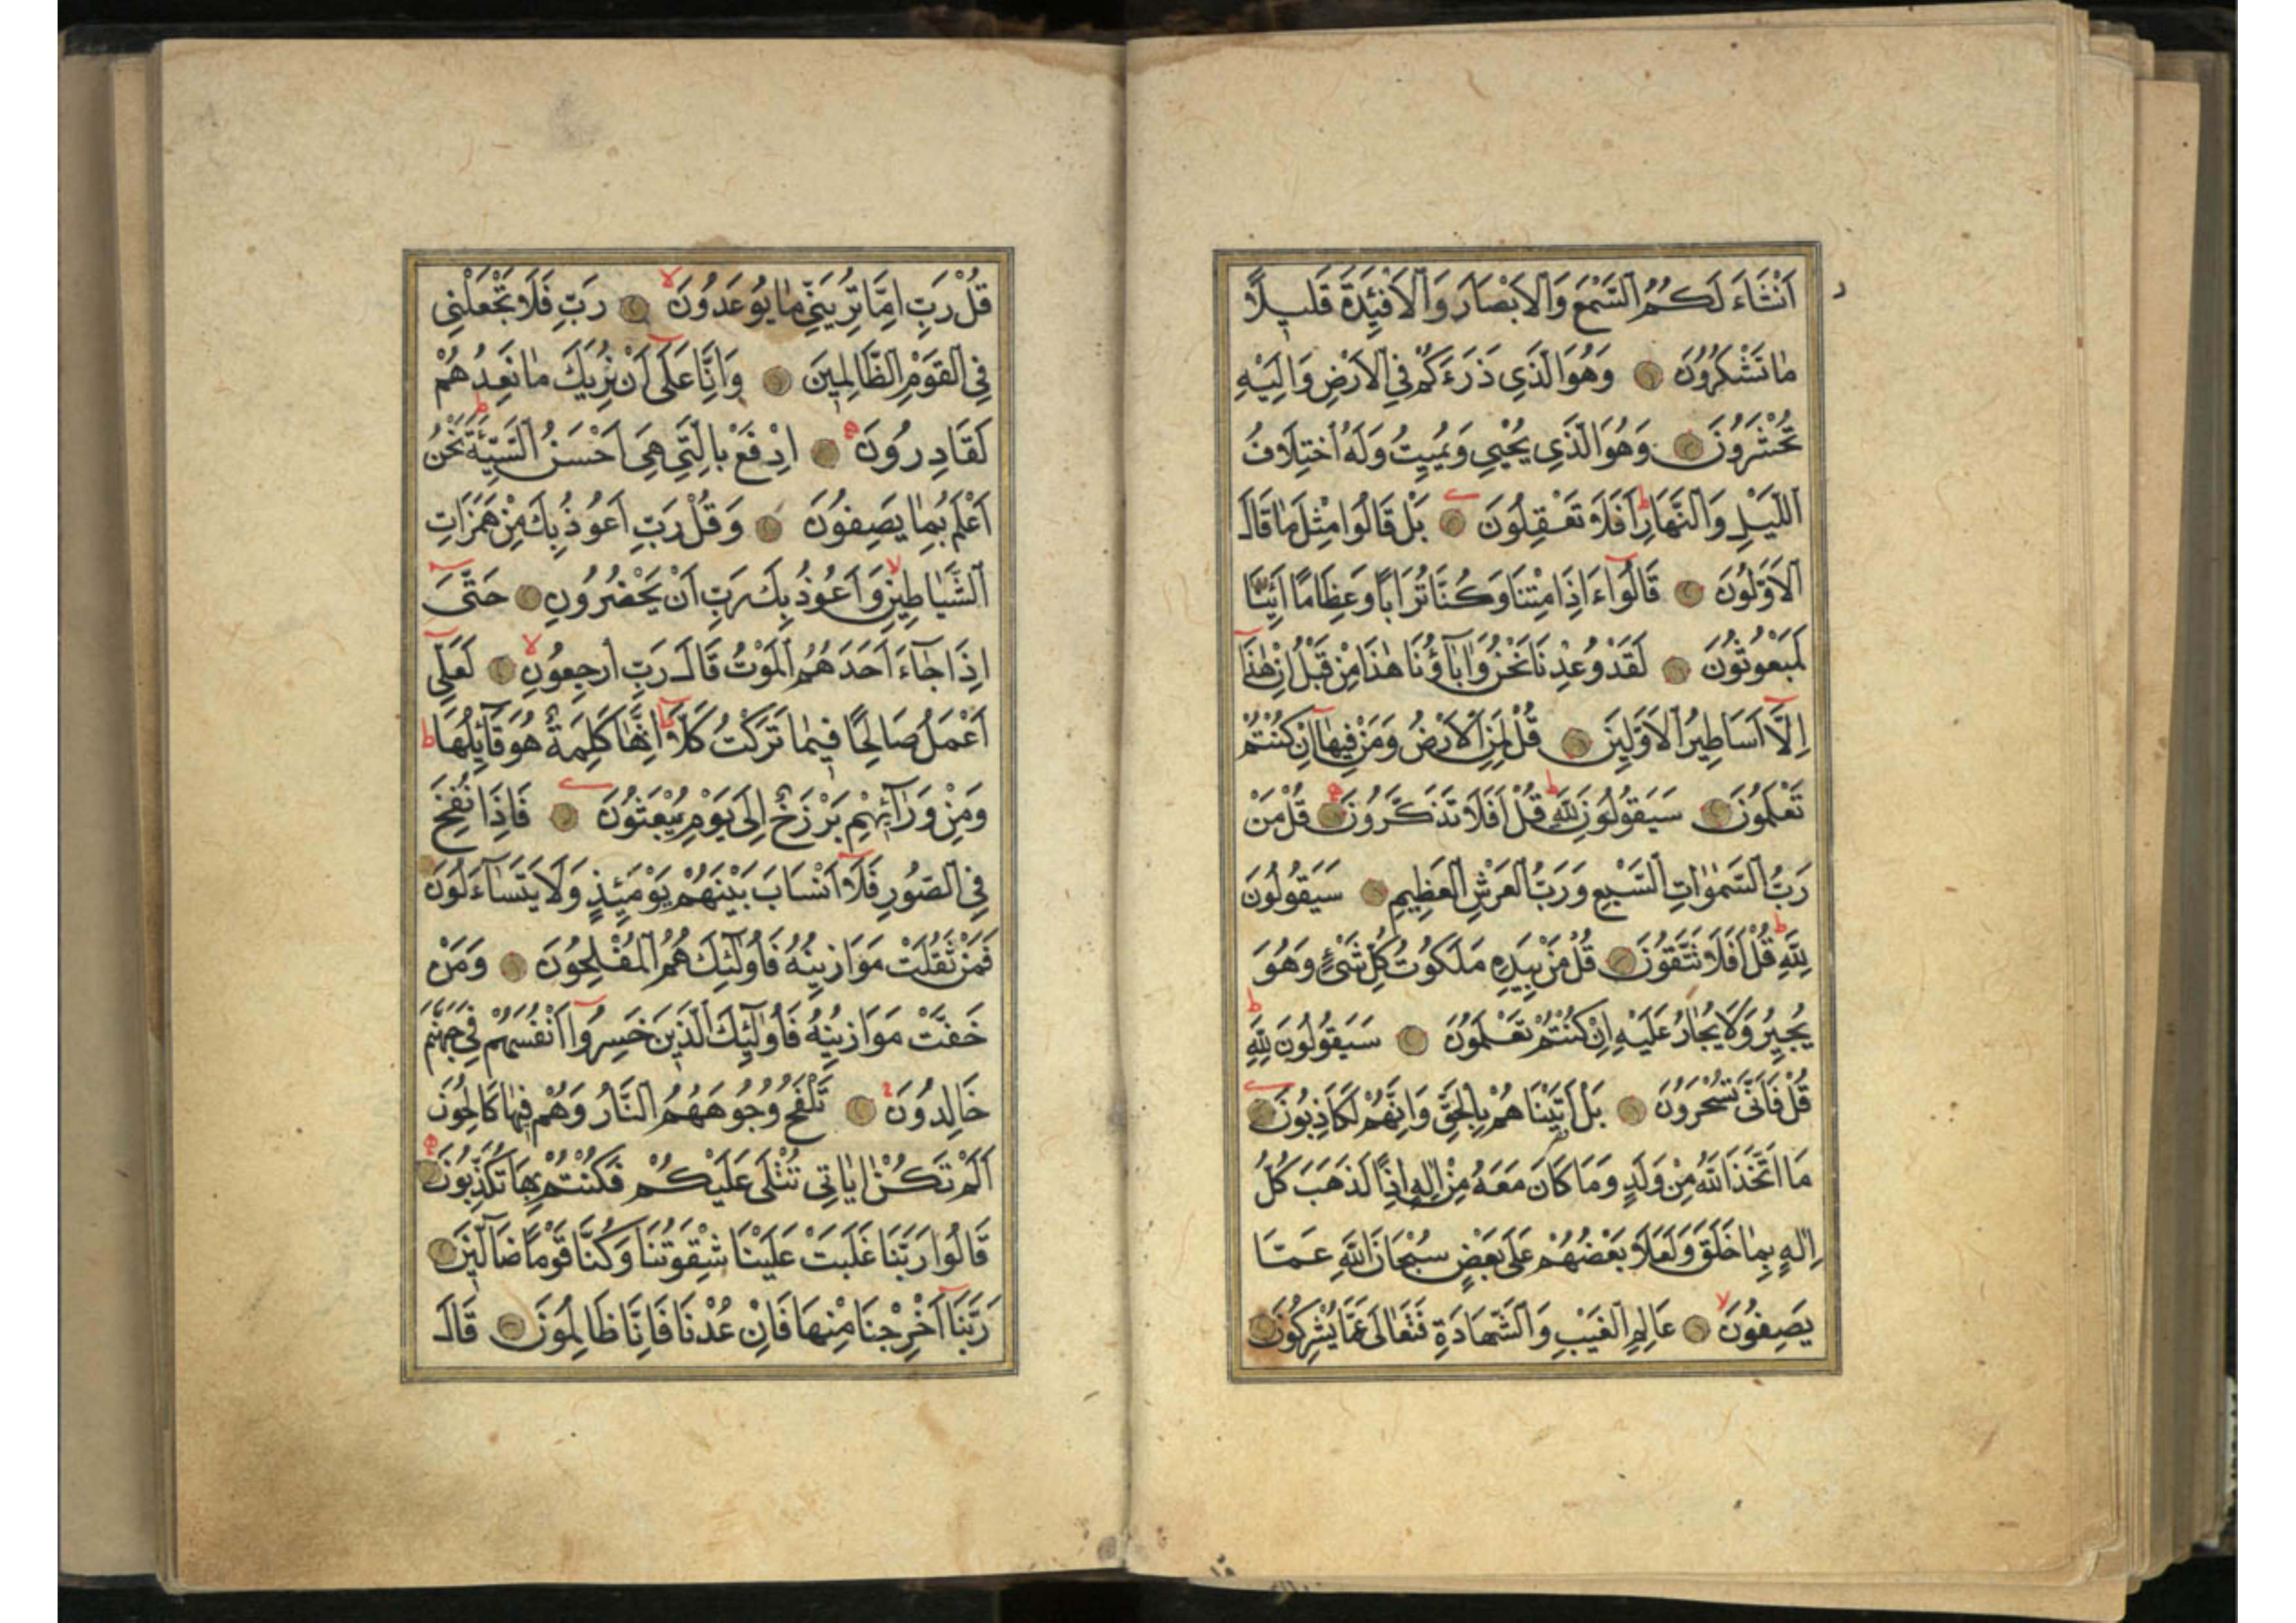 اَنْشَاَ لَكُمُ السَّمْعَ وَالْاَبْصَارَ وَالْاَفْئِدَةَ قَلٖيلًا
مَا تَشْكُرُونَ وَهُوَ الَّذٖى ذَرَاَكُمْ فِى الْاَرْضِ وَاِلَيْهِ
تُحْشَرُونَ وَهُوَ الَّذٖى يُحْيٖى وَيُمٖيتُ وَلَهُ اخْتِلَافُ
الَّيْلِ وَالنَّهَارِ اَفَلَا تَعْقِلُونَ بَلْ قَالُوا مِثْلَ مَا قَالَ
الْاَوَّلُونَ قَالُوا ءَاِذَا مِتْنَا وَكُنَّا تُرَابًا وَعِظَامًا اَئِنَّا
لَمَبْعُوثُونَ لَقَدْ وُعِدْنَا نَحْنُ وَاٰبَاؤُنَا هٰذَا مِنْ قَبْلُ اِنْ هٰذَا
اِلَّا اَسَاطٖيرُ الْاَوَّلٖينَ قُلْ لِمَنِ الْاَرْضُ وَمَنْ فٖيهَا اِنْ كُنْتُمْ
تَعْلَمُونَ سَيَقُولُونَ لِلّٰهِ قُلْ اَفَلَا تَذَكَّرُونَ قُلْ مَنْ
رَبُّ السَّمٰوَاتِ السَّبْعِ وَرَبُّ الْعَرْشِ الْعَظٖيمِ سَيَقُولُونَ
لِلّٰهِ قُلْ اَفَلَا تَتَّقُونَ قُلْ مَنْ بِيَدِهٖ مَلَكُوتُ كُلِّ شَىْءٍ وَهُوَ
يُجٖيرُ وَلَا يُجَارُ عَلَيْهِ اِنْ كُنْتُمْ تَعْلَمُونَ سَيَقُولُونَ لِلّٰهِ
قُلْ فَاَنّٰى تُسْحَرُونَ بَلْ اَتَيْنَاهُمْ بِالْحَقِّ وَاِنَّهُمْ لَكَاذِبُونَ
مَا اتَّخَذَ اللّٰهُ مِنْ وَلَدٍ وَمَا كَانَ مَعَهُ مِنْ اِلٰهٍ اِذًا لَذَهَبَ كُلُّ
اِلٰهٍ بِمَا خَلَقَ وَلَعَلَا بَعْضُهُمْ عَلٰى بَعْضٍ سُبْحَانَ اللّٰهِ عَمَّا
يَصِفُونَ عَالِمِ الْغَيْبِ وَالشَّهَادَةِ فَتَعَالٰى عَمَّا يُشْرِكُونَ
قُلْ رَبِّ اِمَّا تُرِيَنّٖى مَا يُوعَدُونَ رَبِّ فَلَا تَجْعَلْنٖى
فِى الْقَوْمِ الظَّالِمٖينَ وَاِنَّا عَلٰى اَنْ نُرِيَكَ مَا نَعِدُهُمْ
لَقَادِرُونَ اِدْفَعْ بِالَّتٖى هِىَ اَحْسَنُ السَّيِّئَةَ نَحْنُ
اَعْلَمُ بِمَا يَصِفُونَ وَقُلْ رَبِّ اَعُوذُ بِكَ مِنْ هَمَزَاتِ
الشَّيَاطٖينِ وَاَعُوذُ بِكَ رَبِّ اَنْ يَحْضُرُونِ حَتّٰى
اِذَا جَاءَ اَحَدَهُمُ الْمَوْتُ قَالَ رَبِّ ارْجِعُونِ لَعَلّٖى
اَعْمَلُ صَالِحًا فٖيمَا تَرَكْتُ كَلَّا اِنَّهَا كَلِمَةٌ هُوَ قَائِلُهَا
وَمِنْ وَرَائِهِمْ بَرْزَخٌ اِلٰى يَوْمِ يُبْعَثُونَ فَاِذَا نُفِخَ
فِى الصُّورِ فَلَا اَنْسَابَ بَيْنَهُمْ يَوْمَئِذٍ وَلَا يَتَسَاءَلُونَ
فَمَنْ ثَقُلَتْ مَوَازٖينُهُ فَاُولٰئِكَ هُمُ الْمُفْلِحُونَ وَمَنْ
خَفَّتْ مَوَازٖينُهُ فَاُولٰئِكَ الَّذٖينَ خَسِرُوا اَنْفُسَهُمْ فٖى جَهَنَّمَ
خَالِدُونَ تَلْفَحُ وُجُوهَهُمُ النَّارُ وَهُمْ فٖيهَا كَالِحُونَ
اَلَمْ تَكُنْ اٰيَاتٖى تُتْلٰى عَلَيْكُمْ فَكُنْتُمْ بِهَا تُكَذِّبُونَ
قَالُوا رَبَّنَا غَلَبَتْ عَلَيْنَا شِقْوَتُنَا وَكُنَّا قَوْمًا ضَالّٖينَ
رَبَّنَا اَخْرِجْنَا مِنْهَا فَاِنْ عُدْنَا فَاِنَّا ظَالِمُونَ قَالَ